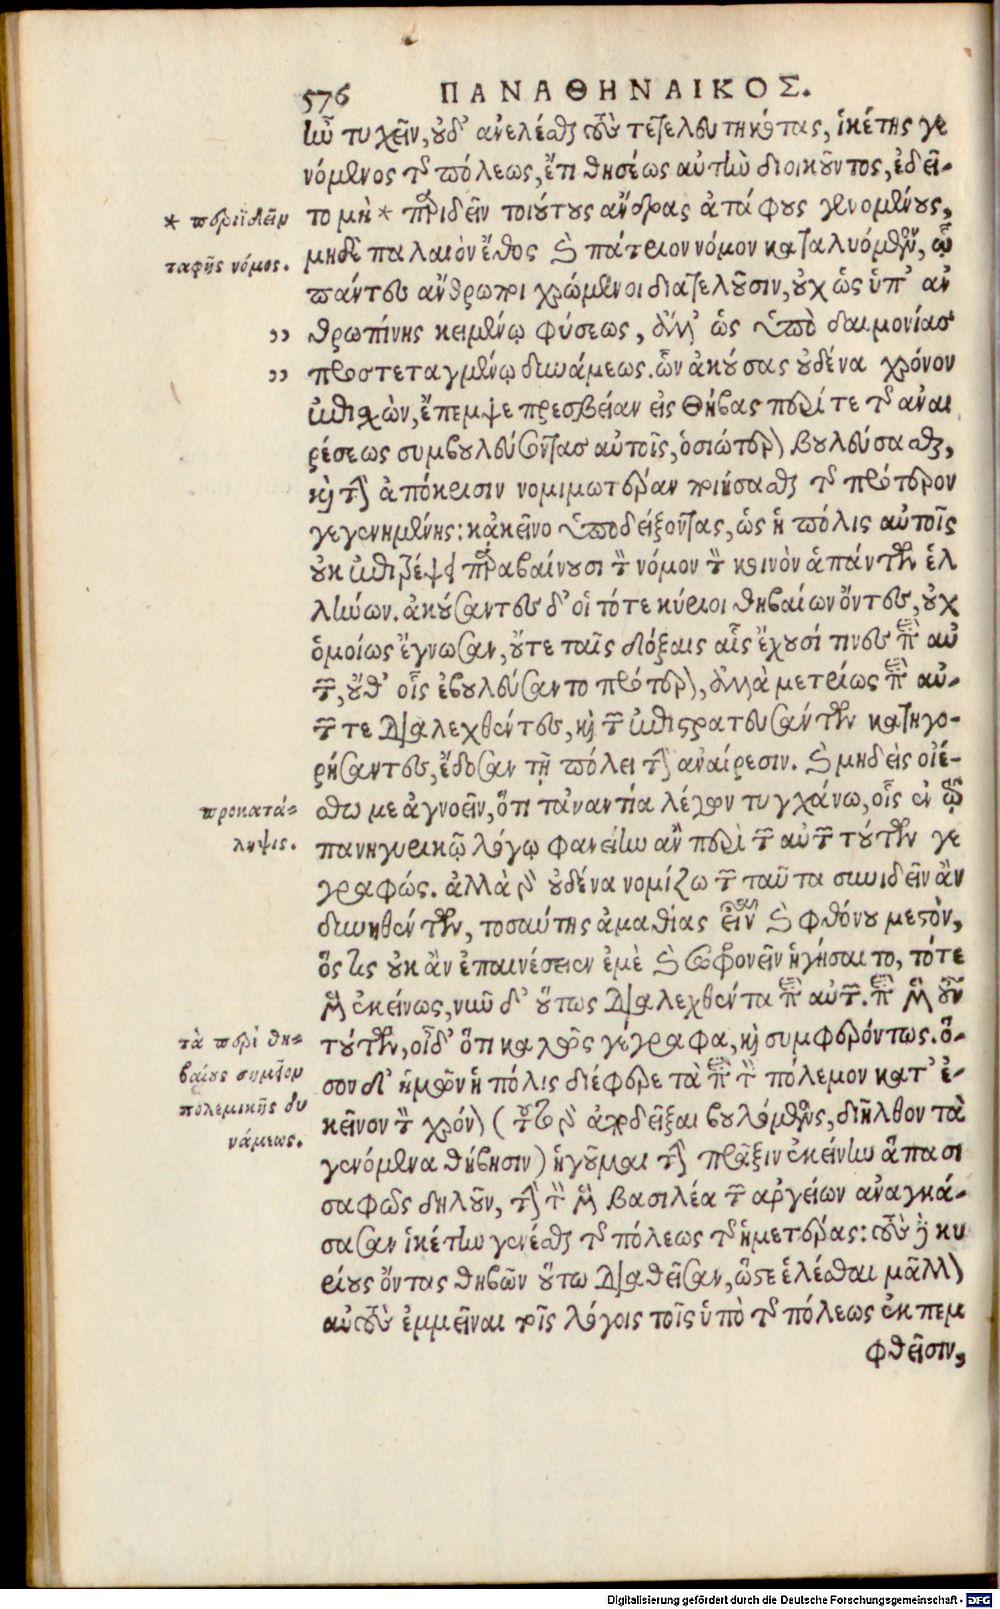 576 ΠΑΝΑΘΗΝΑΙΚΟΣ.
ἦν τυχεῖν, οὐδ' ἀνελέσθαι τοὺς τετελευτηκότας, ἱκέτης γε
νόμενος τῆς πόλεως, ἔτι θησέως αὐτὴν διοικοῦντος, ἐδεῖ-
* περιϊδεῖν
το μὴ * παριδεῖν τοιούτους ἄνδρας ἀτάφους γενομένους,
ταφῆς νόμος.
μηδὲ παλαιὸν ἔθος καὶ πάτριον νόμον καταλυόμενον, ᾧ
πάντες ἄνθρωποι χρώμενοι διατελοῦσιν, οὐχ ὡς ὑπ' ἀν
,, θρωπίνης κειμένῳ φύσεως, ἀλλ' ὡς ὑπὸ δαιμονίας
,, προστεταγμένῳ δυνάμεως. ὧν ἀκούσας οὐδένα χρόνον
ἐπισχὼν, ἔπεμψε πρεσβείαν εἰς Θήβας περί τε τῆς ἀναι
ρέσεως συμβουλεύσοντας αὐτοῖς, ὁσιώτερον βουλεύσασθαι,
καὶ τὴν ἀπόκρισιν νομιμωτέραν ποιήσασθαι τῆς πρότερον
γεγενημένης: κἀκεῖνο ὑποδείξοντας, ὡς ἡ πόλις αὐτοῖς
οὐκ ἐπιτρέψει παραβαίνουσι τὸν νόμον τὸν κοινὸν ἁπάντων ἑλ
λήνων. ἀκούσαντες δ' οἱ τότε κύριοι θηβαίων ὄντες, οὐχ
ὁμοίως ἔγνωσαν, οὔτε ταῖς δόξαις αἷς ἔχουσί τινες περὶ αὐ
τῶν, οὔθ' οἷς ἐβουλεύσαντο πρότερον, ἀλλὰ μετρίως περὶ αὑ-
τῶν τε διαλεχθέντες, καὶ τῶν ἐπιστρατευσάντων κατηγο-
ρήσαντες, ἔδοσαν τῇ πόλει τὴν ἀναίρεσιν. καὶ μηδεὶς οἰέ-
προκατά-
σθω με ἀγνοεῖν, ὅτι τἀναντία λέγων τυγχάνω, οἷς ἐν τῷ
ληψις.
πανηγυρικῷ λόγῳ φανείην ἂν περὶ τῶν αὐτῶν τούτων γε
γραφώς. ἀλλὰ γὰρ οὐδένα νομίζω τῶν ταῦτα συνιδεῖν ἂν
δυνηθέντων, τοσαύτης ἀμαθίας εἶναι καὶ φθόνου μεστὸν,
ὅστις οὐκ ἂν ἐπαινέσειεν ἐμὲ καὶ σωφρονεῖν ἡγήσαιτο, τότε
μὲν ἐκείνως, νῦν δ' οὕτως διαλεχθέντα περὶ αὐτῶν. περὶ μὲν οὖν
τὰ περὶ θη-
τούτων, οἶδ' ὅτι καλῶς γέγραφα, καὶ συμφερόντως. ὅ-
βαίους σημεῖον
σον δ' ἡμῶν ἡ πόλις διέφερε τὰ περὶ τὸν πόλεμον κατ' ἐ-
πολεμικῆς δυ
κεῖνον τὸν χρόνον (τοῦτο γὰρ ἀποδεῖξαι βουλόμενος, διῆλθον τὰ
νάμεως.
γενόμενα θήβησιν) ἡγοῦμαι τὴν πρᾶξιν ἐκείνην ἅπασι
σαφῶς δηλοῦν, τὴν τὸν μὲν βασιλέα τῶν ἀργείων ἀναγκά-
σασαν ἱκέτην γενέσθαι τῆς πόλεως τῆς ἡμετέρας: τοὺς δὲ κυ
ρίους ὄντας θηβῶν οὕτω διαθεῖσαν, ὥστε ἑλέσθαι μᾶλλον
αὐτοὺς ἐμμεῖναι τοῖς λόγοις τοῖς ὑπὸ τῆς πόλεως ἐκπεμ
φθεῖσιν,
Digitalisierung gefördert durch die Deutsche Forschungsgemeinschaft - DFG